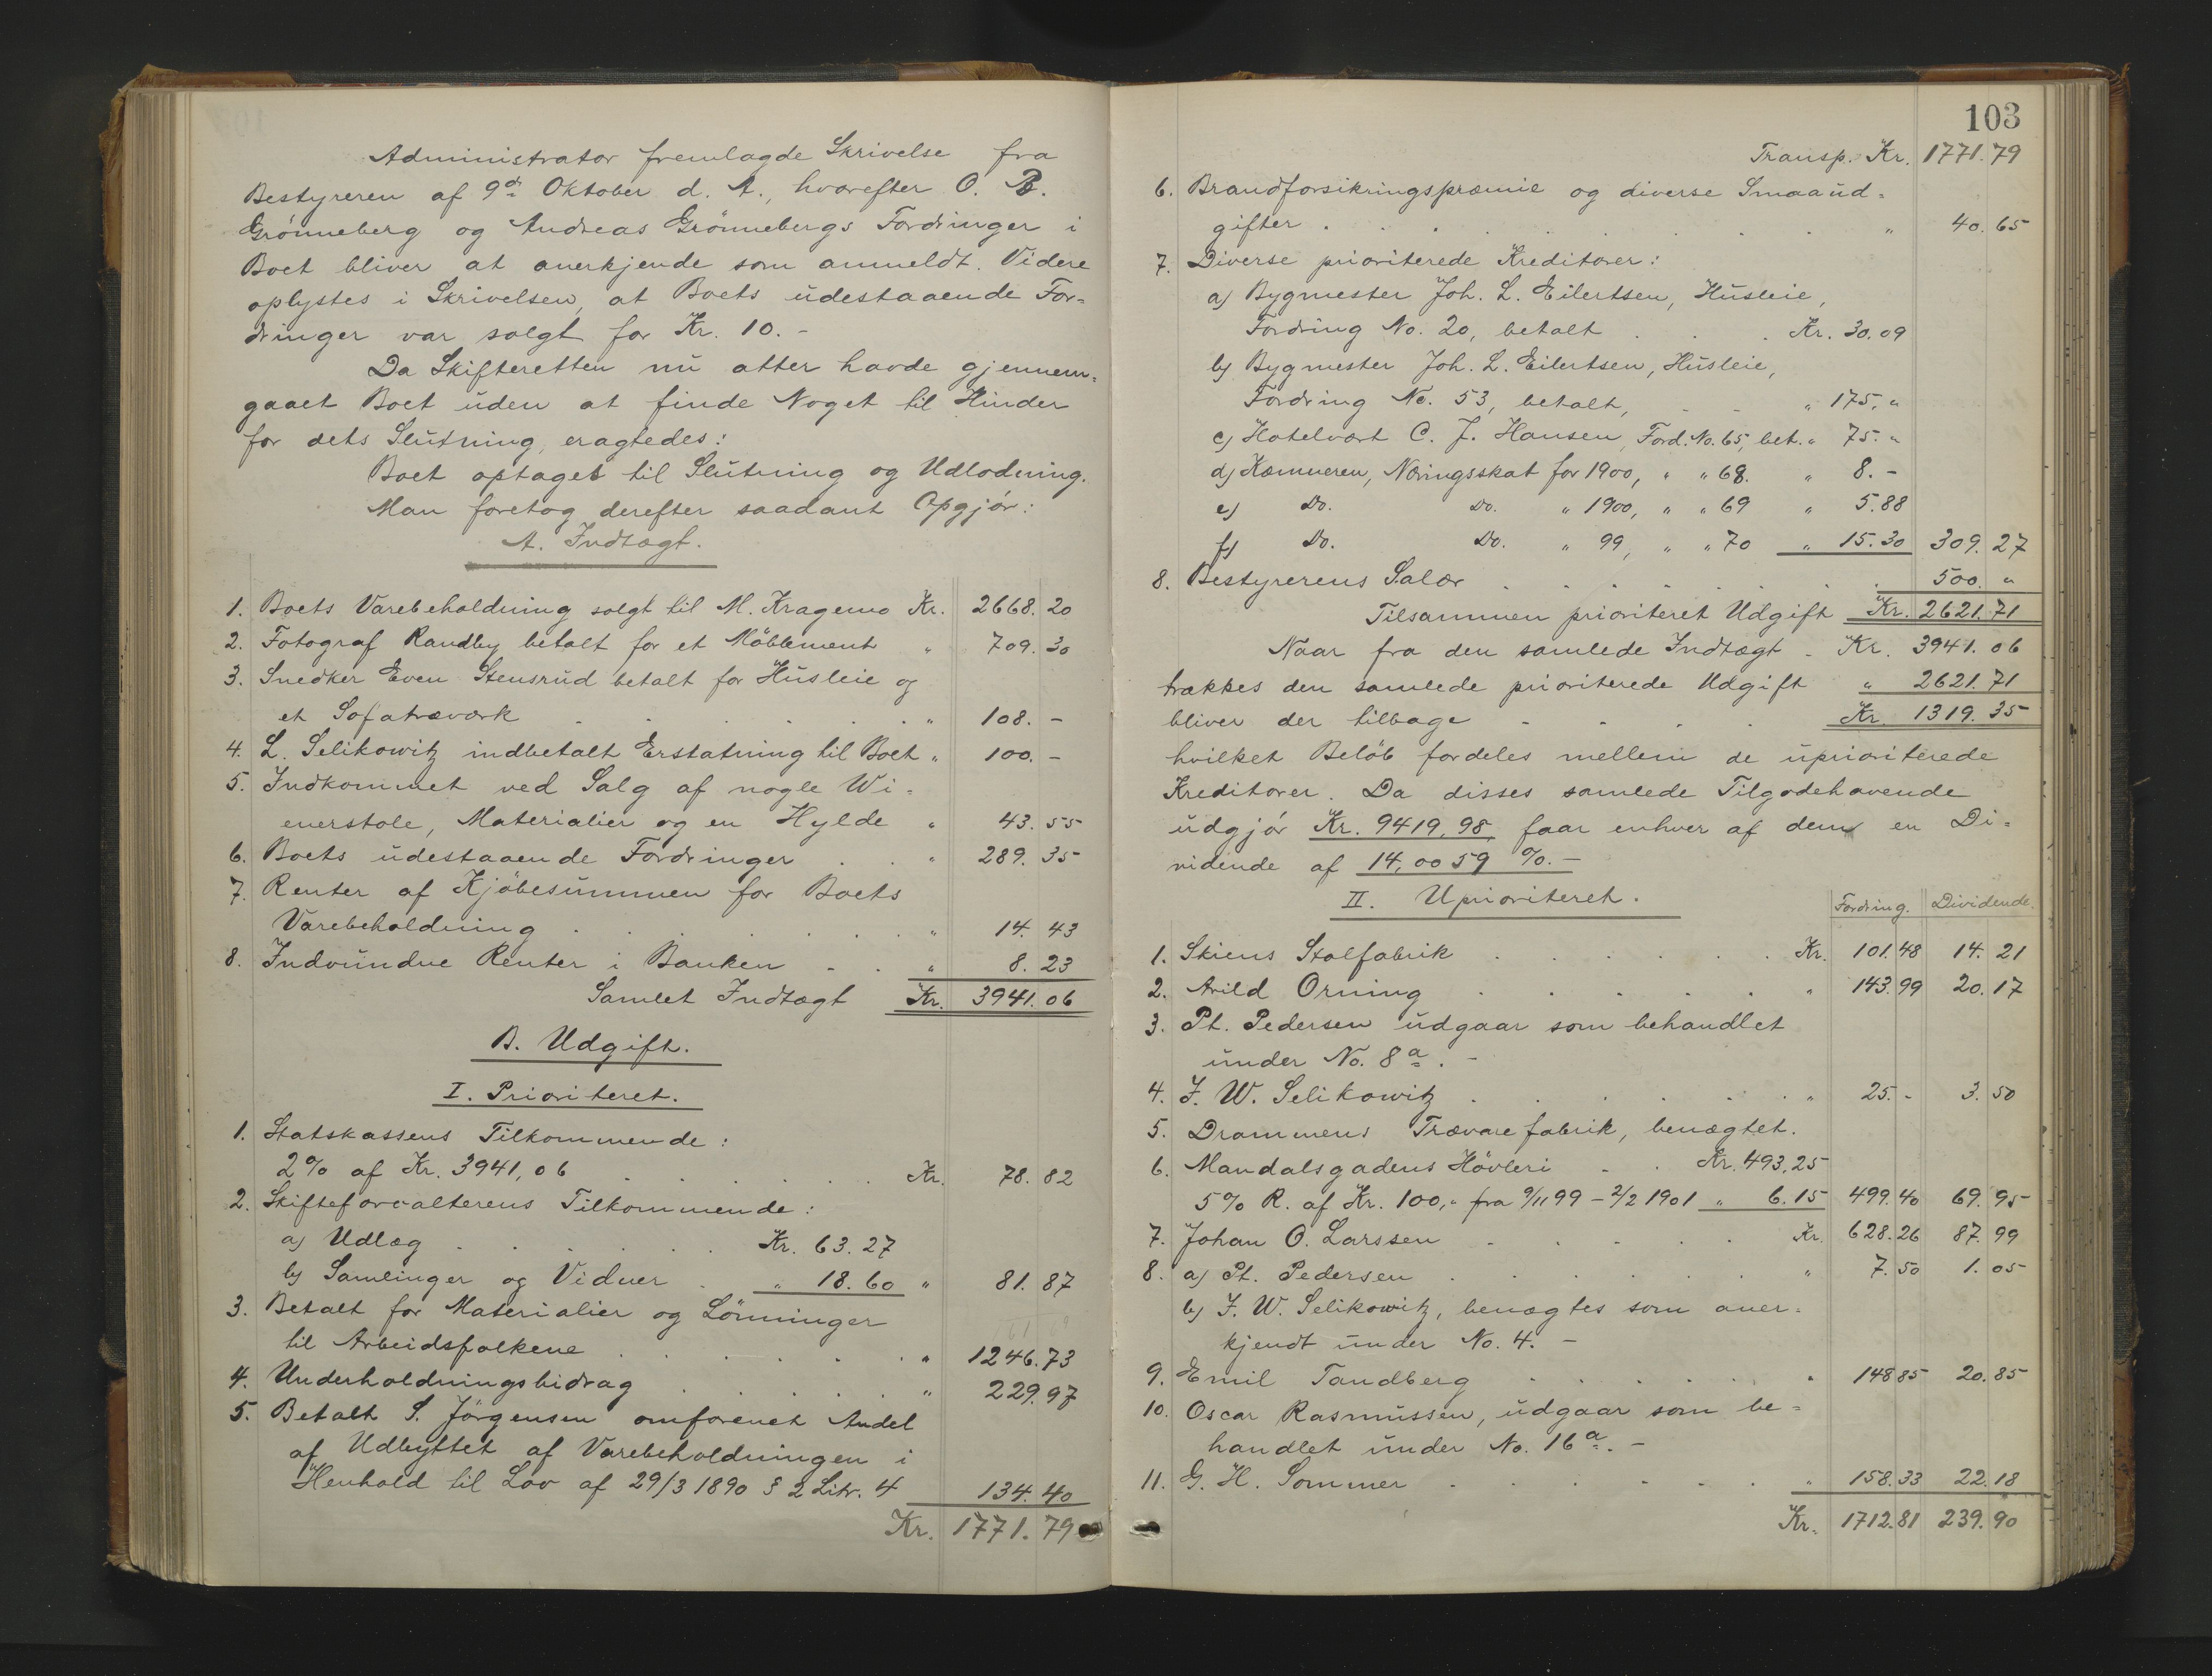 Administrator fremlagde Skrivelse fra
Bestyreren af 9de Oktober d. A., hvorefter O. B.
Grönneberg og Andreas Grönnebergs Fordringer i
Boet bliver at anerkjende som anmeldt. Videre
oplystes i Skrivelsen, at Boets udestaaende For-
dringer var solgt for Kr. 10. -
Da Skifteretten nu atter havde gjennem-
gaaet Boet uden at finde Noget til Hinder
for dets Slutning, eragtedes:
Boet optaget til Slutning og Udlodning.
Man foretog derefter saadant Opgjör:
A. Indtægt.
1. Boets Varebeholdning solgt til M. Kragemo Kr. 2668. 20
2. Fotograf Randby betalt for et Möblement " 709. 30
3. Snedker Even Stensrud betalt for Husleie og
et Sofatræværk . . . . . . " 108. -
4. L. Selikowitz indbetalt Erstatning til Boet " 100. -
5. Indkommet ved Salg af nogle Wi-
enerstole, Materialier og en Hylde " 43. 55
6. Boets udestaaende Fordringer . . " 289. 35
7. Renter af Kjöbesummen for Boets
Varebeholdning . . . . . . " 14. 43
8. Indvundne Renter i Banken - . " 8. 23
Samlet Indtægt Kr. 3941. 06
B. Udgift.
I. Prioriteret.
1. Statskassens Tilkommende:
2% af Kr. 3941,06 . . . . . . Kr. 78. 82
2. Skifteforvalterens Tilkommende:
a) Udlæg . . . . . Kr. 63. 27
b) Samlinger og Vidner . " 18. 60 " 81. 87
3. Betalt for Materialier og Lönninger
til Arbeidsfolkene . . . . . . " 1246. 73
4. Underholdningsbidrag . . . . . " 229. 97
5. Betalt S. Jörgensen omforenet Andel
af Udbyttet af Varebeholdningen i
Henhold til Lov af 29/3 1890 § 2 Litr. 4 134. 40
Kr. 1771. 79
103
Transp. Kr. 1771. 79
6. Brandforsikringspræmie og diverse Smaaud-
gifter . . . . . . . . " 40. 65
7. Diverse prioriterede Kreditorer:
a) Bygmester Joh. L. Eilertsen, Husleie,
Fordring No. 20, betalt . . . Kr. 30. 09
b) Bygmester Joh. L. Eilertsen, Husleie,
Fordring No. 53, betalt, - - " 175. "
c) Hotelvært C. J. Hansen, Ford. No. 65, bet. " 75. "
d) Kæmneren, Næringsskat for 1900, " " 68. " 8. -
e) Do. Do. " 1900, " " 69 " 5. 88
f) Do. Do. " 99, " " 70 " 15. 30 309. 27
8. Bestyrerens Salær . . . . . . . 500. "
Tilsammen prioriteret Udgift Kr. 2621. 71
Naar fra den samlede Indtægt - Kr. 3941. 06
trækkes den samlede prioriterede Udgift " 2621. 71
bliver der tilbage - . . . Kr. 1319. 35
hvilket Belöb fordeles mellem de uprioriterede
Kreditorer. Da disses samlede Tilgodehavende
udgjör Kr. 9419,98 faar enhver af dem en Di-
vidende af 14,0059 %. -
II. Uprioriteret.
Fordring. Dividende.
1. Skiens Stolfabrik . . . . . . Kr. 101. 48 14. 21
2. Arild Orning . . . . . " 143. 99 20. 17
3. Pt. Pedersen udgaar som behandlet
under No. 8a. -
4. J. W. Selikowitz . . . . . . " 25. - 3. 50
5. Drammens Trævarefabrik, benægtet.
6. Mandalsgadens Hövleri - . Kr. 493. 25
5% R. af Kr. 100," fra 9/11 99 - 2/2 1901 " 6. 15 499. 40 69. 95
7. Johan O. Larssen - . . . . Kr. 628. 26 87. 99
8. a) Pt. Pedersen . . . . . . " 7. 50 1. 05
b) J. W. Selikowitz, benægtes som aner-
kjendt under No. 4. -
9. Emil Tandberg . . . . . . " 148 85 20. 85
10. Oscar Rasmussen, udgaar som be-
handlet under No. 16a. -
11. G. H. Sommer - . . . . . " 158. 33 22. 18
Kr. 1712. 81 239. 90